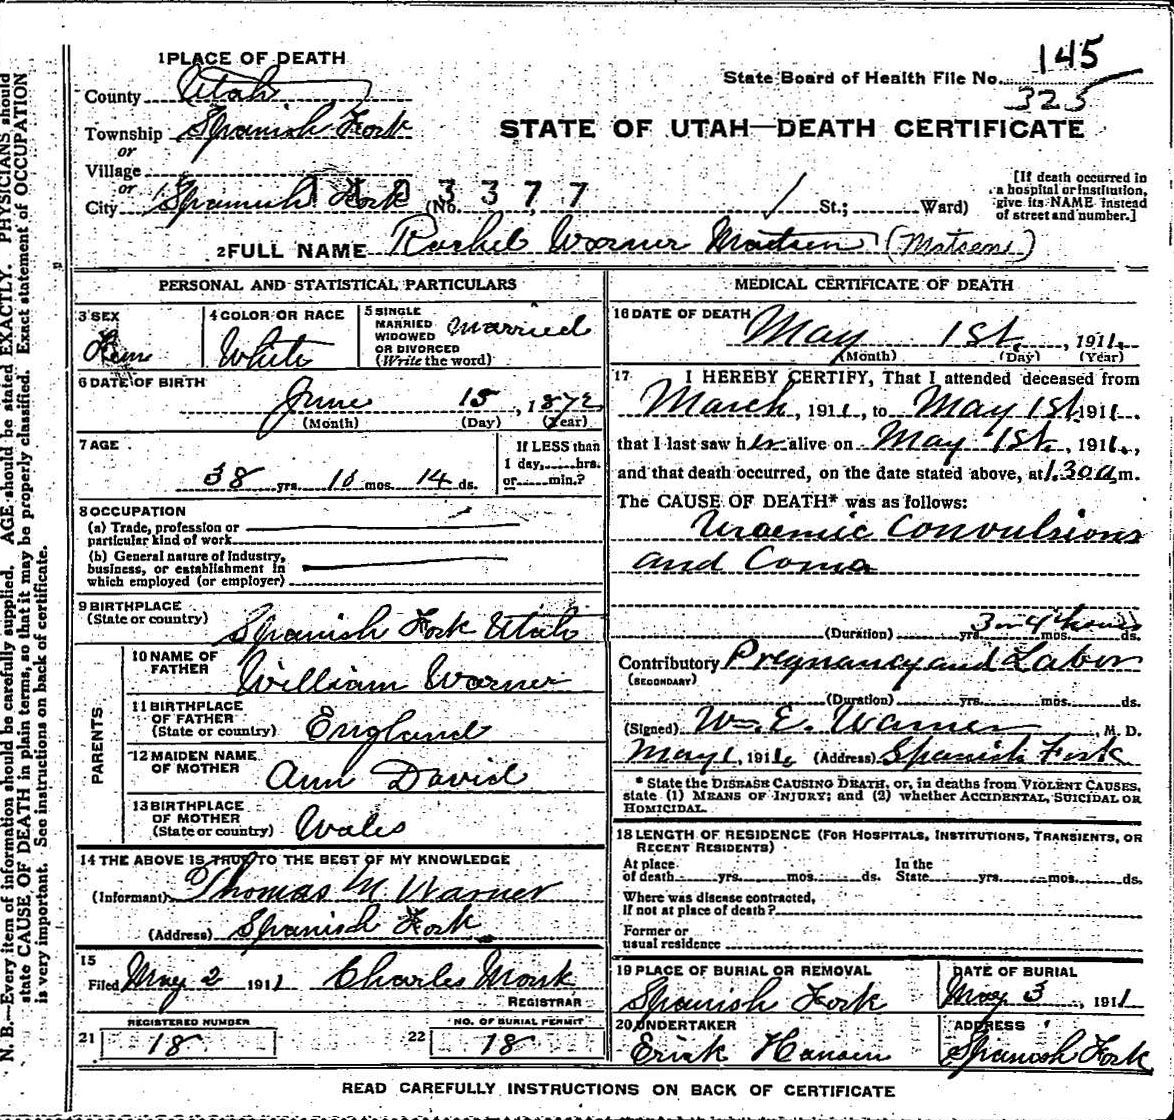 N. B.—Every item of information should be carefully supplied. AGE should be stated EXACTLY. PHYSICIANS should
state CAUSE OF DEATH in plain terms, so that it may be properly classified. Exact statement of OCCUPATION
is very important. See instructions on back of certificate.
1 PLACE OF DEATH
County Utah
Township Spanish Fork
or
Village
or
City Spanish Fork (No. St.; Ward)
3 3 7 7
State Board of Health File No. 145
325
STATE OF UTAH—DEATH CERTIFICATE
[If death occurred in
a hospital or institution,
give its NAME instead
of street and number.]
2 FULL NAME Rachel Warner Matsen (Matsene)
PERSONAL AND STATISTICAL PARTICULARS
3 SEX
Fem
4 COLOR OR RACE
White
5 SINGLE
MARRIED
WIDOWED
OR DIVORCED
(Write the word)
Married
6 DATE OF BIRTH
June 15, 1872
(Month) (Day) (Year)
7 AGE
38 yrs. 10 mos. 14 ds.
If LESS than
1 day, hrs.
or min.?
8 OCCUPATION
(a) Trade, profession or
particular kind of work
(b) General nature of industry,
business, or establishment in
which employed (or employer)
9 BIRTHPLACE
(State or country) Spanish Fork Utah
PARENTS
10 NAME OF
FATHER William Warner
11 BIRTHPLACE
OF FATHER
(State or country) England
12 MAIDEN NAME
OF MOTHER Ann David
13 BIRTHPLACE
OF MOTHER
(State or country) Wales
14 THE ABOVE IS TRUE TO THE BEST OF MY KNOWLEDGE
(Informant) Thomas M. Warner
(Address) Spanish Fork
15
Filed May 2 1911 Charles Monk
REGISTRAR
REGISTERED NUMBER
21 18
NO. OF BURIAL PERMIT
22 18
MEDICAL CERTIFICATE OF DEATH
16 DATE OF DEATH
May 1st, 1911.
(Month) (Day) (Year)
17 I HEREBY CERTIFY, That I attended deceased from
March, 1911, to May 1st 1911.
that I last saw her alive on May 1st, 1911,
and that death occurred, on the date stated above, at 1.30 a m.
The CAUSE OF DEATH* was as follows:
Uraemic Convulsions
and Coma
(Duration) yrs. mos. ds.
3 or 4 hours
Contributory Pregnancy and Labor
(SECONDARY)
(Duration) yrs. mos. ds.
(Signed) Wm. E. Warner, M. D.
May 1, 1911, (Address) Spanish Fork
* State the DISEASE CAUSING DEATH, or, in deaths from VIOLENT CAUSES,
state (1) MEANS OF INJURY; and (2) whether ACCIDENTAL, SUICIDAL OR
HOMICIDAL.
18 LENGTH OF RESIDENCE (FOR HOSPITALS, INSTITUTIONS, TRANSIENTS, OR
RECENT RESIDENTS)
At place
of death yrs. mos. ds.
In the
State yrs. mos. ds.
Where was disease contracted,
if not at place of death?
Former or
usual residence
19 PLACE OF BURIAL OR REMOVAL
Spanish Fork
DATE OF BURIAL
May 3, 1911
20 UNDERTAKER
Erick Hansen
ADDRESS
Spanish Fork
READ CAREFULLY INSTRUCTIONS ON BACK OF CERTIFICATE